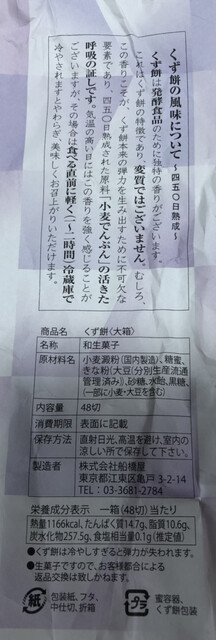 くず餅の風味について 〜四五〇日熟成〜
くず餅は発酵食品のために独特の香りがございます。
これはくず餅の特徴であり、変質ではございません。むしろ、
この香りこそが、くず餅本来の弾力を生み出すために不可欠な
要素であり、四五〇日熟成された原料「小麦でんぷん」の活きた
呼吸の証しです。気温の高い日にはこの香りを強く感じることが
ございますが、その場合は食べる直前に軽く(一〜二時間)冷蔵庫で
冷やされますとやわらぎ、美味しくお召上がりいただけます。
商品名 くず餅〈大箱〉
名称 和生菓子
原材料名 小麦澱粉(国内製造)、糖蜜、
きな粉(大豆(分別生産流通
管理済み))、砂糖、水飴、黒糖、
(一部に小麦・大豆を含む)
内容量 48切
消費期限 表面に記載
保存方法 直射日光、高温を避け、室内の
涼しい所で保存して下さい。
製造者 株式会社船橋屋
東京都江東区亀戸3-2-14
TEL 03-3681-2784
栄養成分表示 一箱(48切)当たり
熱量1166kcal、たんぱく質14.7g、脂質10.6g、
炭水化物257.5g、食塩相当量0.1g(推定値)
●くず餅は冷やしすぎると弾力が失われます。
●生菓子ですので、お客様都合による
返品交換は致しかねます。
紙 包装紙、フタ、
中仕切、折箱
プラ 蜜容器、
くず餅包装